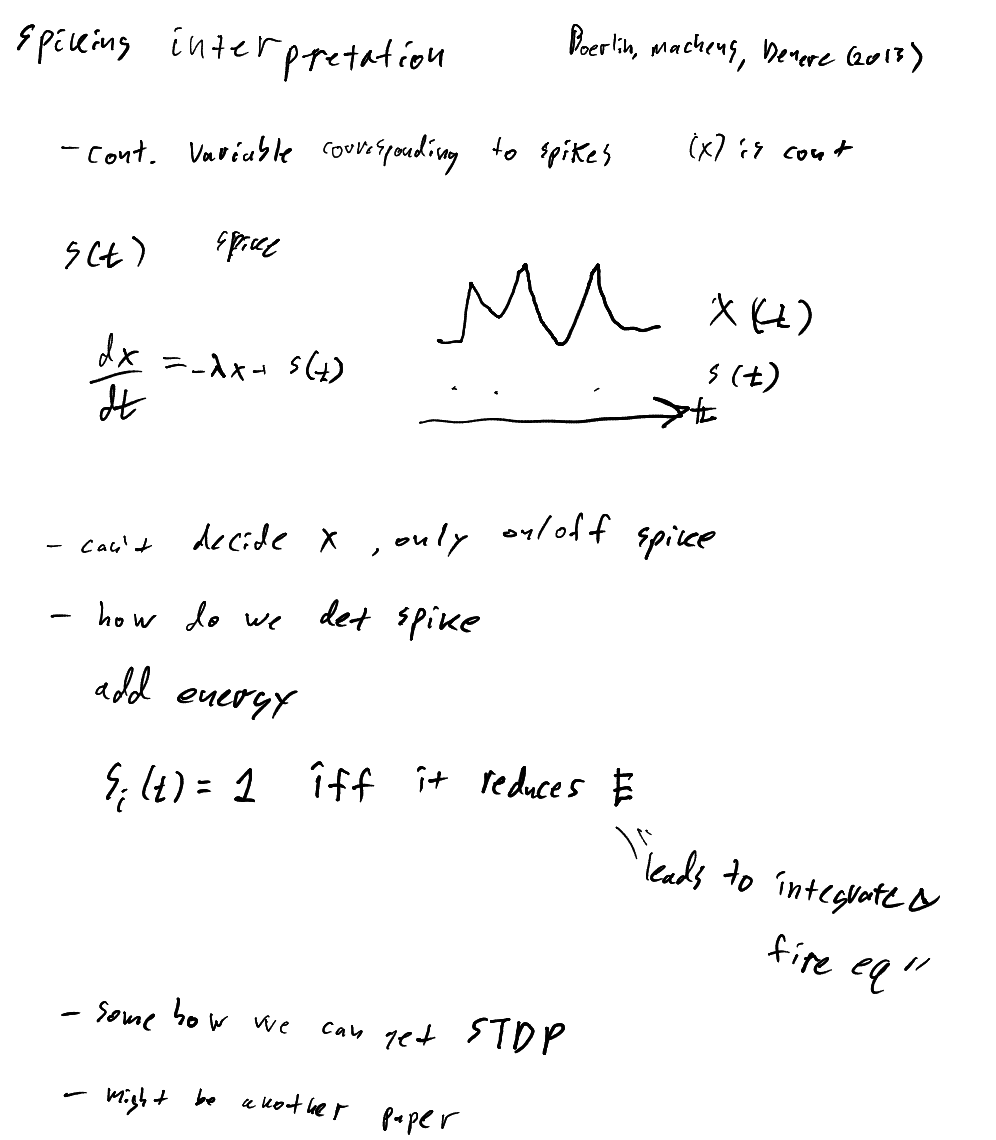 spiking interpretation Boerlin, Machens, Deneve (2013)
- cont. variable corresponding to spikes (x) is cont
s(t) spike
x(t)
dx/dt = -λx + s(t)
s(t)
t
- can't decide x, only on/off spike
- how do we det spike
add energy
S_i(t) = 1 iff it reduces E
"leads to integrate &
fire eq"
- somehow we can get STDP
- might be another paper